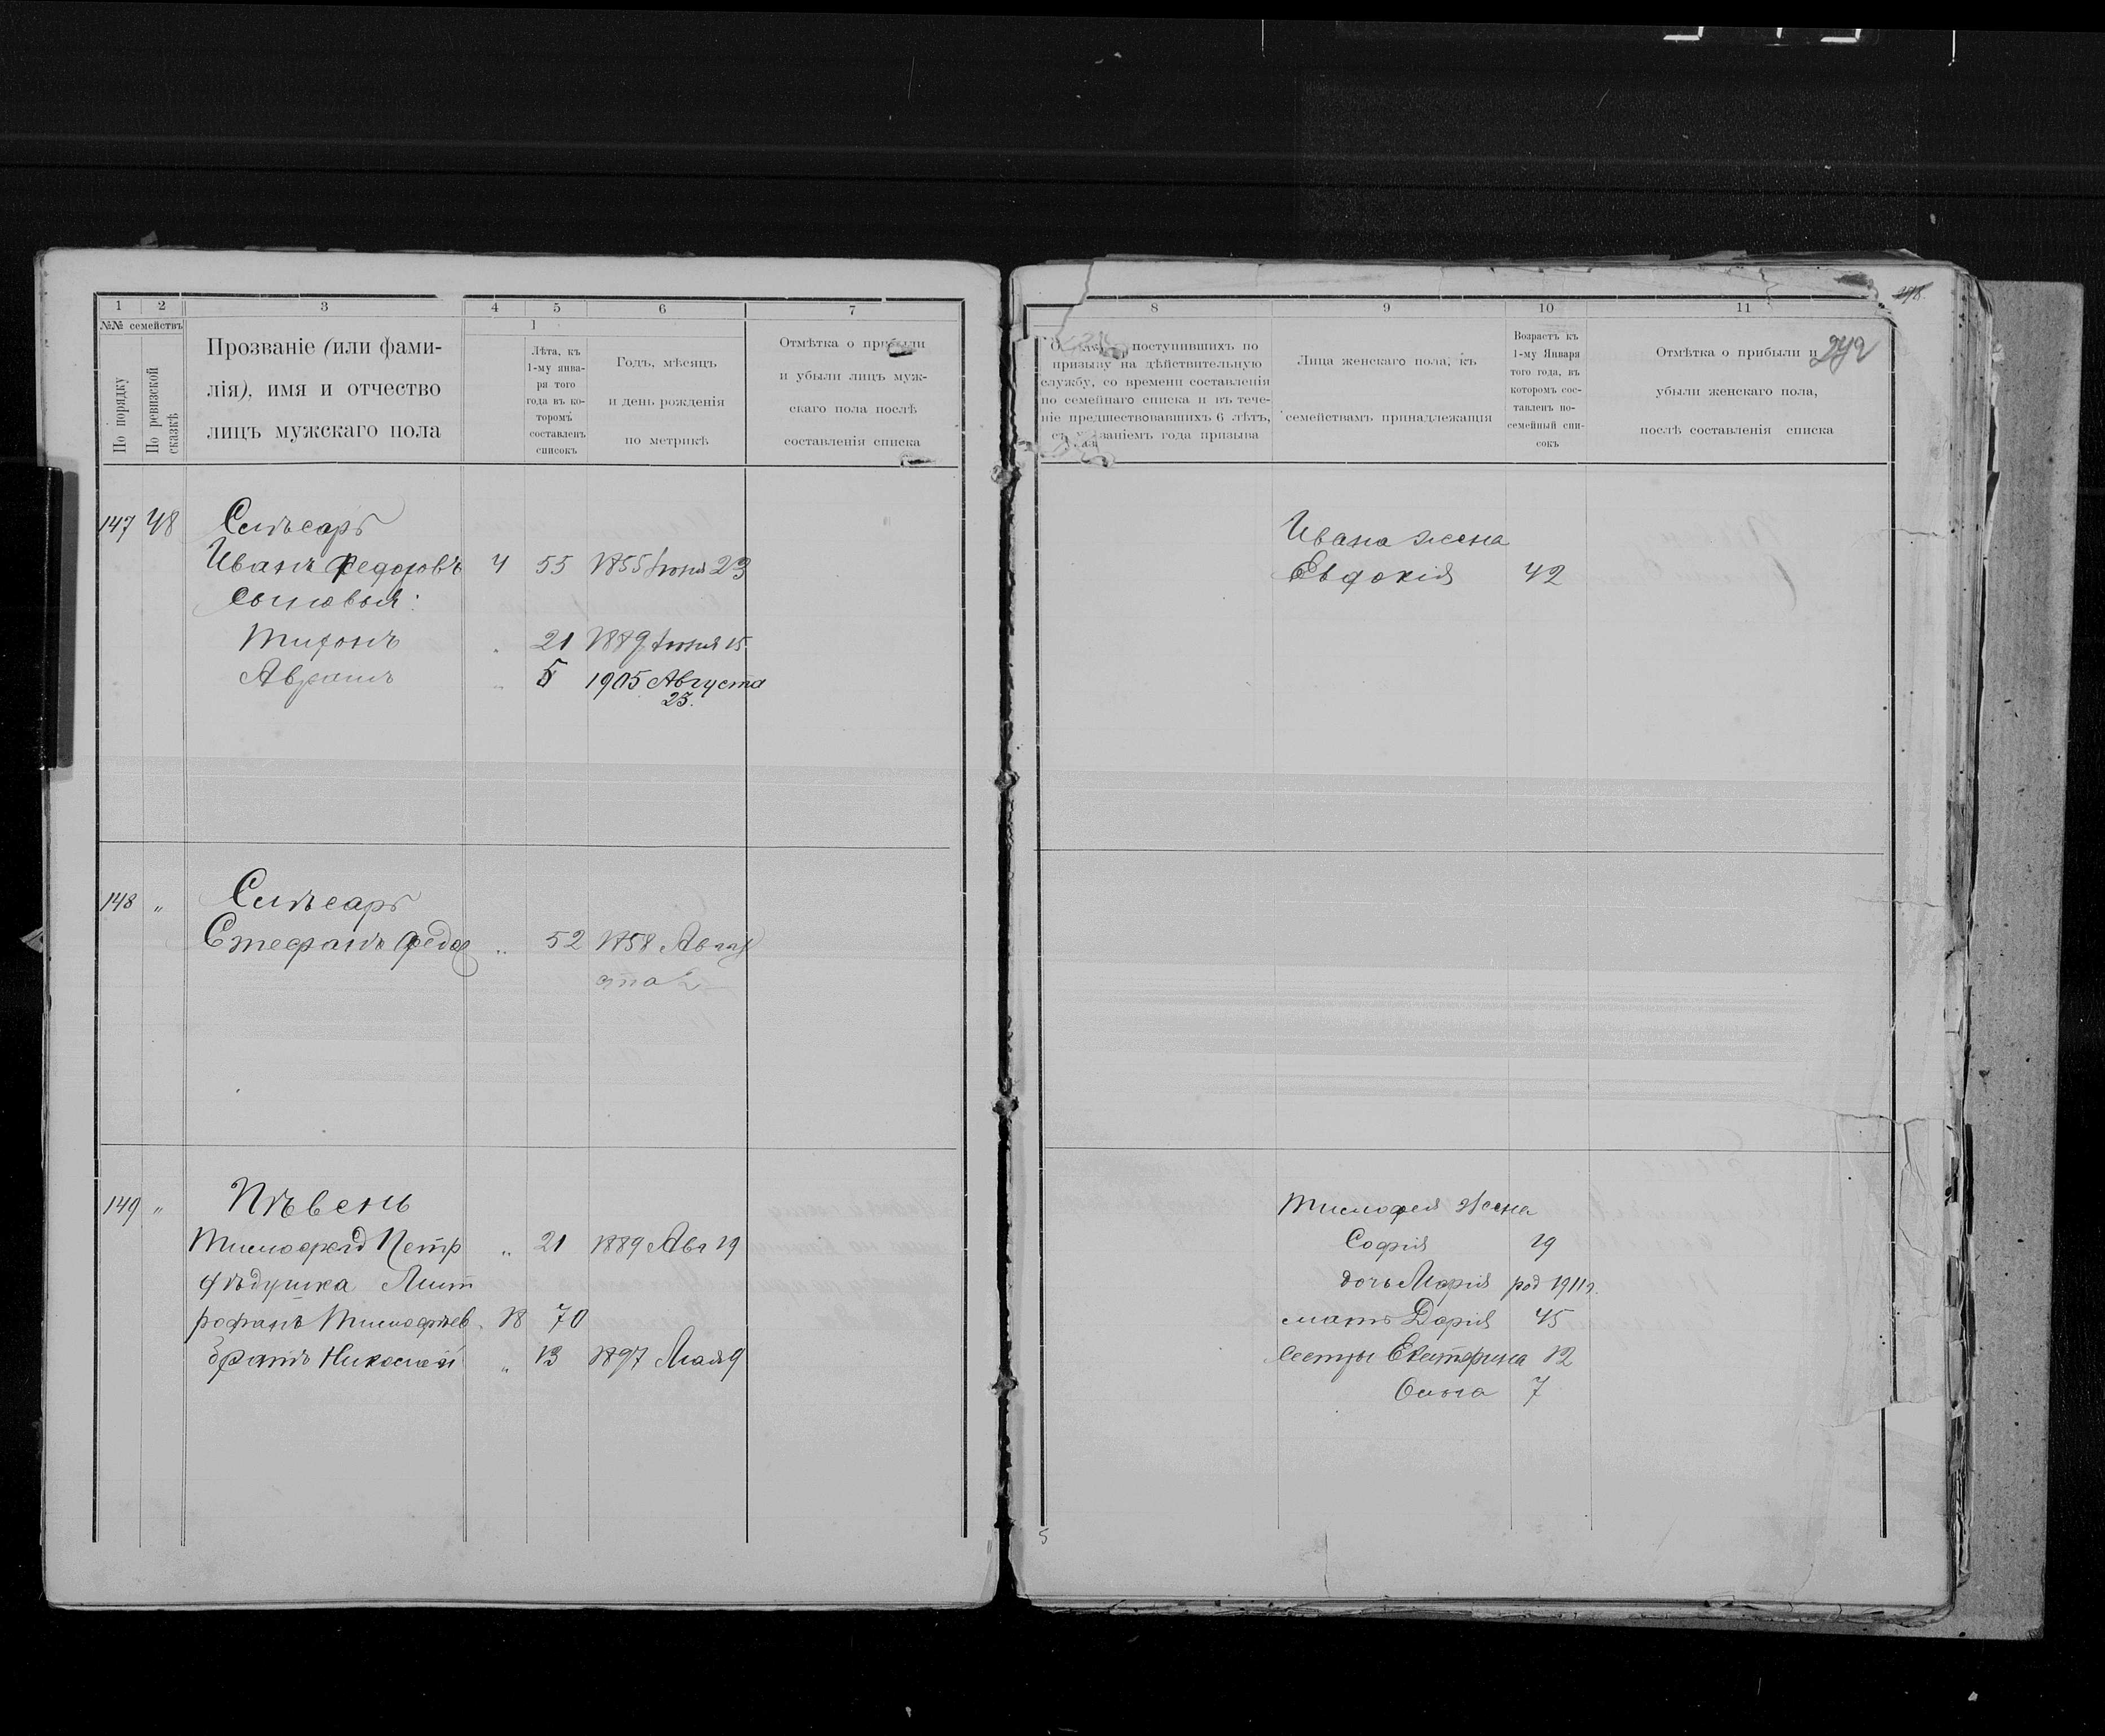 1 2 3 4 5 6 7
№№ семействъ
По порядку
По ревизской сказкѣ
Прозваніе (или фами-
лія), имя и отчество
лицъ мужскаго пола
1
Лѣта, къ
1-му янва-
ря того
года въ ко-
торомъ
составленъ
списокъ
Годъ, мѣсяцъ
и день рожденія
по метрикѣ
Отмѣтка о прибыли
и убыли лицъ муж-
скаго пола послѣ
составленія списка
147 48 Слѣсарь
Иванъ Федоровъ 4 55 1855 Іюня 23
сыновья:
Тихонъ . 21 1889 Іюня 15
Аврамъ 5 1905 Августа
23.
148 „ Слѣсарь
Стефанъ Федор „ 52 1858 Авгу
ста 2
149 „ Пѣвень
Тимофей Петр „ 21 1889 Авг 19
дѣдушка Мит
рофанъ Тимофѣев. 18 70
братъ Николай „ 13 1897 Мая 9
8 9 10 11
242
поступившихъ по
призыву на дѣйствительную
службу, со времени составленія
по семейнаго списка и въ тече-
ніе предшествовавшихъ 6 лѣтъ,
съ указаніемъ года призыва
Лица женскаго пола, къ
семействамъ принадлежащія
Возрастъ къ
1-му Января
того года, въ
которомъ сос-
тавленъ по-
семейный спи-
сокъ
Отмѣтка о прибыли и
убыли женскаго пола,
послѣ составленія списка
Ивана жена
Евдокія 42
Тимофея жена
Софія 19
дочь Марія род 1911г.
мать Дарія 45
сестры Екатерина 12
Ольга 7
5